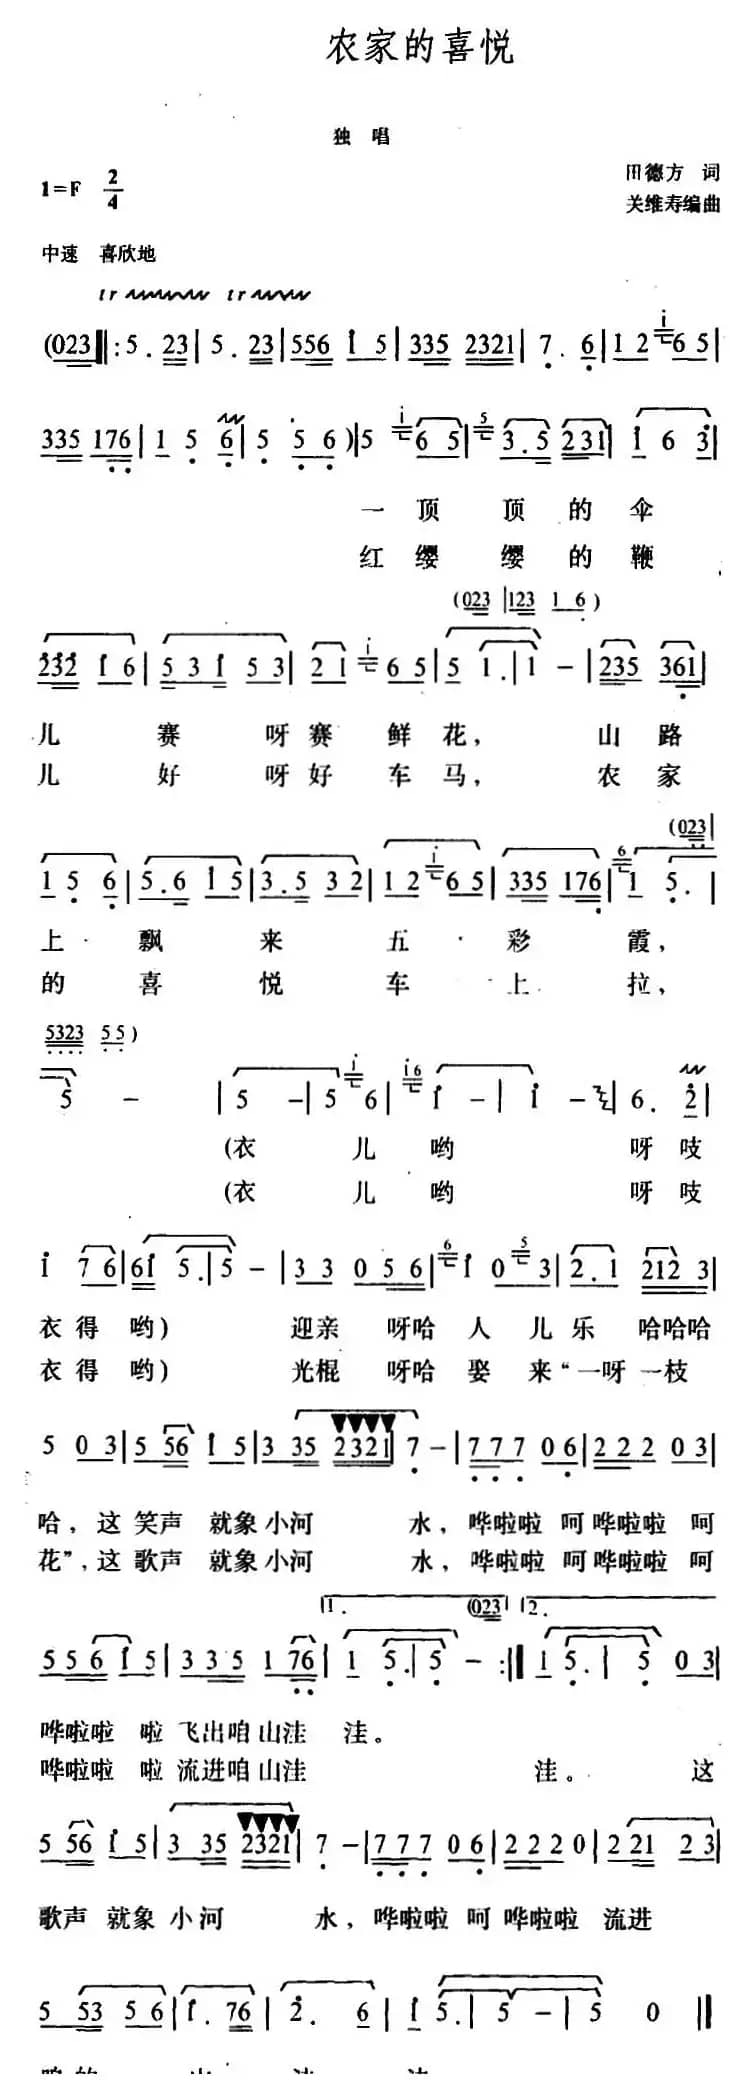 农家的喜悦
独 唱
1=F 2/4
田德方 词
关维寿编曲
中速 喜欣地
tr tr
(023‖:5.23|5.23|556 i 5|335 2321|7. 6|12 i 65|
335 176|1 5 6|5 5 6)|5 i 65|5 3.5 231|i 6 3|
一 顶 顶 的 伞
红 缨 缨 的 鞭
(023|123 1 6)
232 i 6|53i 53|21 i 65|5 1.|1 -|235 361|
儿 赛 呀 赛 鲜 花, 山 路
儿 好 呀 好 车 马, 农 家
(023|
15 6|5.6 i5|3.5 32|12 i 65|335 176|6 1 5.|
上 飘 来 五 彩 霞,
的 喜 悦 车 上 拉,
5323 55)
5 - |5 -|5 i 6|i6 i -|i -|6. 2|
(衣 儿 哟 呀 吱
(衣 儿 哟 呀 吱
i 76|6i 5.|5 -|33 056|6 i 0 5 3|2.1 212 3|
衣 得 哟) 迎亲 呀哈 人 儿 乐 哈哈哈
衣 得 哟) 光棍 呀哈 娶 来 “一呀 一枝
5 03|5 56 i5|3 35 2321|7 -|777 06|222 03|
哈, 这 笑声 就象 小河 水, 哗啦啦 呵 哗啦啦 呵
花”, 这 歌声 就象 小河 水, 哗啦啦 呵 哗啦啦 呵
1. (023 2.
556 i5|335 1 76|1 5.|5 - :‖1 5.|5 03|
哗啦啦 啦 飞出咱 山洼 洼。
哗啦啦 啦 流进咱 山洼 洼。 这
5 56 i5|3 35 2321|7 -|777 06|2220|221 23|
歌声 就象 小河 水, 哗啦啦 呵 哗啦啦 流进
5 53 56|i. 76|2. 6|i 5.|5 -|5 0‖